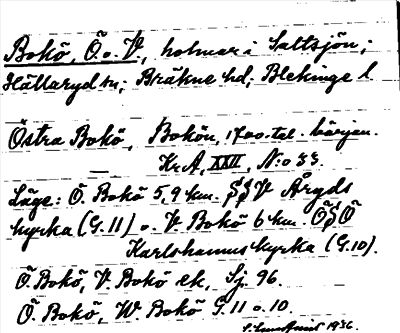 Bokö, Ö. o. V., holmar i Saltsjön;
Hällaryd sn; Bräkne hd; Blekinge l.
Östra Bokö, Bokön, 1700-tal. början.
— Kr A, XXII, No 33.
Läge: Ö. Bokö 5,9 km. SSV Åryds
kyrka (G.11) o. V. Bokö 6 km. ÖSÖ
Karlshamns kyrka (G.10).
Ö. Bokö, V. Bokö ek, Sj. 96.
Ö. Bokö, W. Bokö G.11 o. 10.
1936.